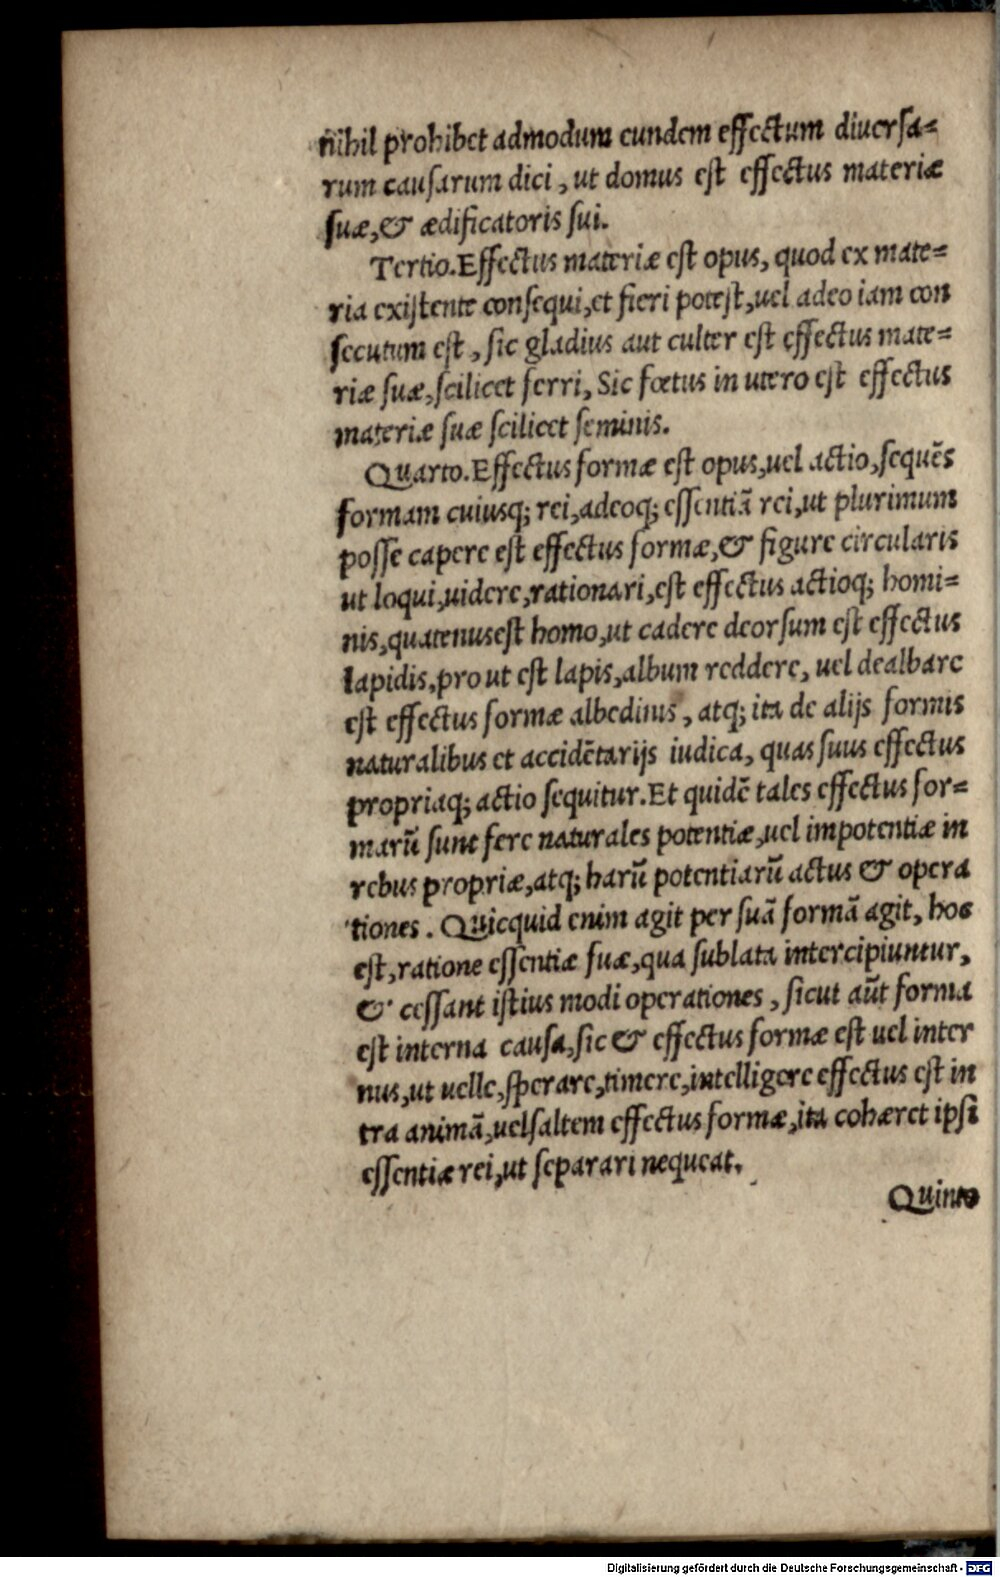 nihil prohibet admodum eundem effectum diuersa=
rum causarum dici, ut domus est effectus materiæ
suæ, & ædificatoris sui.
Tertio. Effectus materiæ est opus, quod ex mate=
ria existente consequi, et fieri potest, uel adeo iam con
secutum est, sic gladius aut culter est effectus mate=
riæ suæ, scilicet ferri, Sic fœtus in utero est effectus
materiæ suæ scilicet seminis.
Quarto. Effectus formæ est opus, uel actio, sequẽs
formam cuiusq; rei, adeoq; essentiã rei, ut plurimum
posse capere est effectus formæ, & figure circularis
ut loqui, uidere, rationari, est effectus actioq; homi=
nis, quatenus est homo, ut cadere deorsum est effectus
lapidis, pro ut est lapis, album reddere, uel dealbare
est effectus formæ albedinis, atq; ita de alijs formis
naturalibus et accidẽtarijs iudica, quas suus effectus
propriaq; actio sequitur. Et quidẽ tales effectus for=
marũ sunt fere naturales potentiæ, uel impotentiæ in
rebus propriæ, atq; harũ potentiarũ actus & opera
tiones. Quicquid enim agit per suã formã agit, hoc
est, ratione essentiæ suæ, qua sublata intercipiuntur,
& cessant istius modi operationes, sicut aũt forma
est interna causa, sic & effectus formæ est uel inter
nus, ut uelle, sperare, timere, intelligere effectus est in
tra animã, uel saltem effectus formæ, ita cohæret ipsi
essentiæ rei, ut separari nequeat.
Quinto
Digitalisierung gefördert durch die Deutsche Forschungsgemeinschaft - DFG